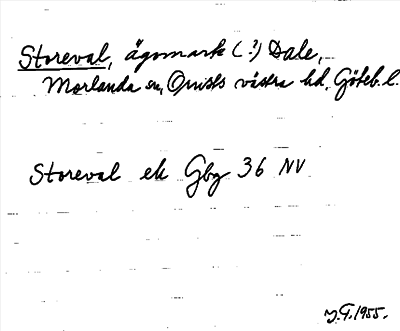 Storeval, ägomark (?) Dale,
Morlanda sn, Orusts västra hd, Göteb. l.
Storeval ek Gbg 36 NV
J.G. 1955.